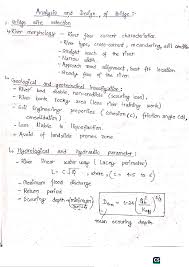 Analysis and Design of Bridge :-
1. Bridge site selection
River morphology - River flow current characteristics.
- River type, cross-current, meandering, silt condition
- Straight reach of the river
- Narrow width
- Approach road alignment, best fit location
- Steady flow of the river
2. Geological and geotechnical Investigation :-
- River bed stable, non-erodible (scouring low).
- River bank (less river training work)
- Soil Engineering properties (cohesion (c), friction angle (φ), consolidation)
- Less liable to liquefaction
- Avoid of landslide prones zone
3. Hydrological and hydraulic parameter :-
- River linear water way (Lacey perimeter)
L = C√Q , where,
- Maximum flood discharge
- Return period
- Scouring depth (minimum)
mean scouring depth
CS